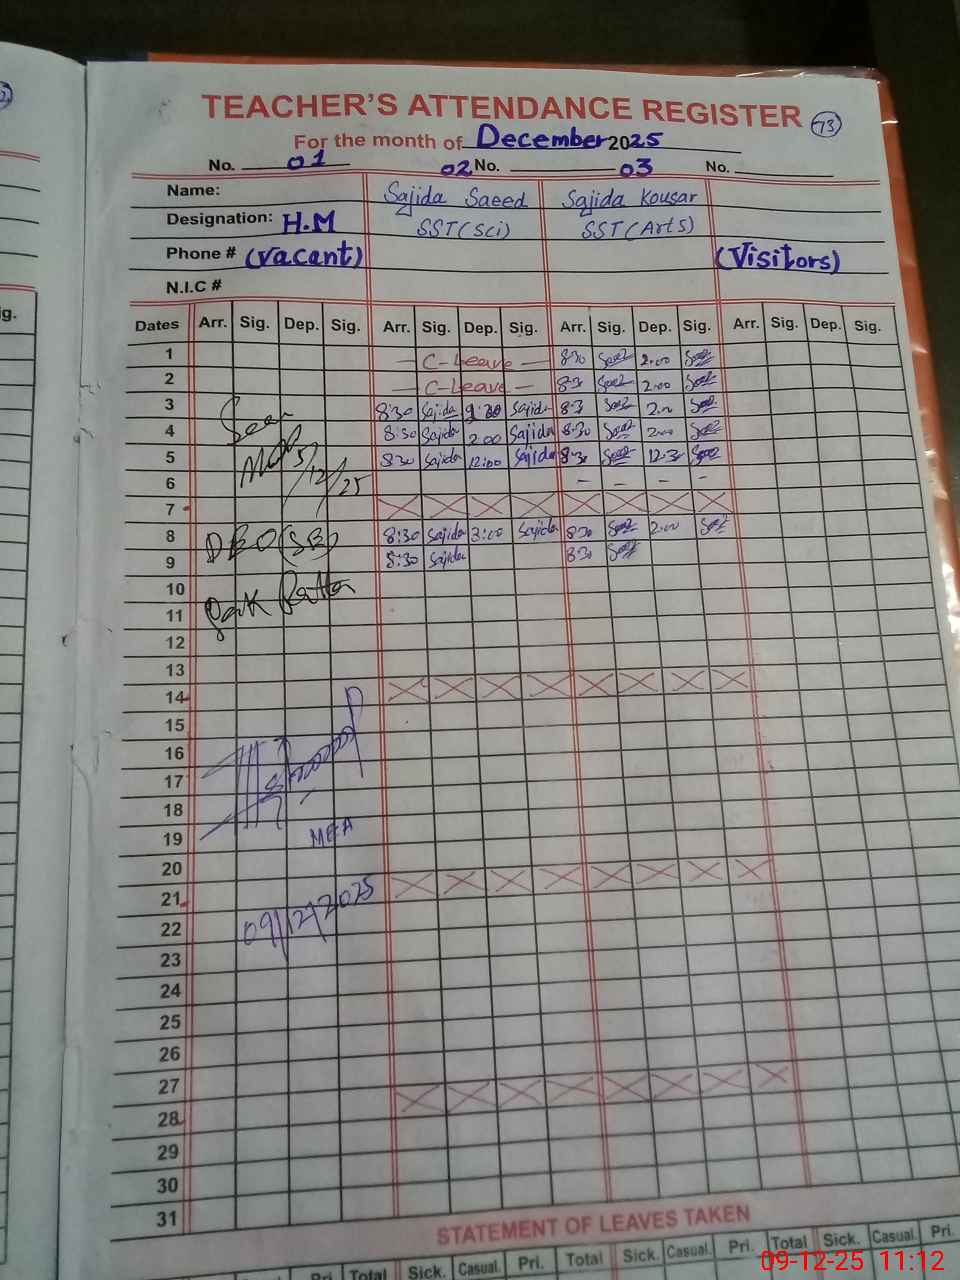 TEACHER'S ATTENDANCE REGISTER 73
For the month of December 2025
No. 01 02 No. 03 No.
Name: Sajida Saeed Sajida Kousar
Designation: H.M SST(Sci) SST(Arts)
Phone # (Vacant) (Visitors)
N.I.C #
Dates Arr. Sig. Dep. Sig. Arr. Sig. Dep. Sig. Arr. Sig. Dep. Sig. Arr. Sig. Dep. Sig.
1 - C-Leave - 8:30 2:00
2 - C-Leave - 8:3 2:00
3 8:30 Sajida Sajida 8:3 2:00
4 8:30 Sajida 2:00 Sajida 8:30 2:00
5 8:30 Sajida 12:00 Sajida 8:30 12:30
6 - - - -
7
8 8:30 Sajida 3:00 Sajida 8:30 2:00
9 8:30 Sajida 8:30
10
11
12
13
14
15
16
17
18
19
20
21
22
23
24
25
26
27
28
29
30
31
Seen
5/12/25
MEA
09/12/2025
STATEMENT OF LEAVES TAKEN
Pri. Total Sick. Casual. Pri. Total Sick. Casual. Pri. Total Sick. Casual. Pri.
ig.
09-12-25 11:12